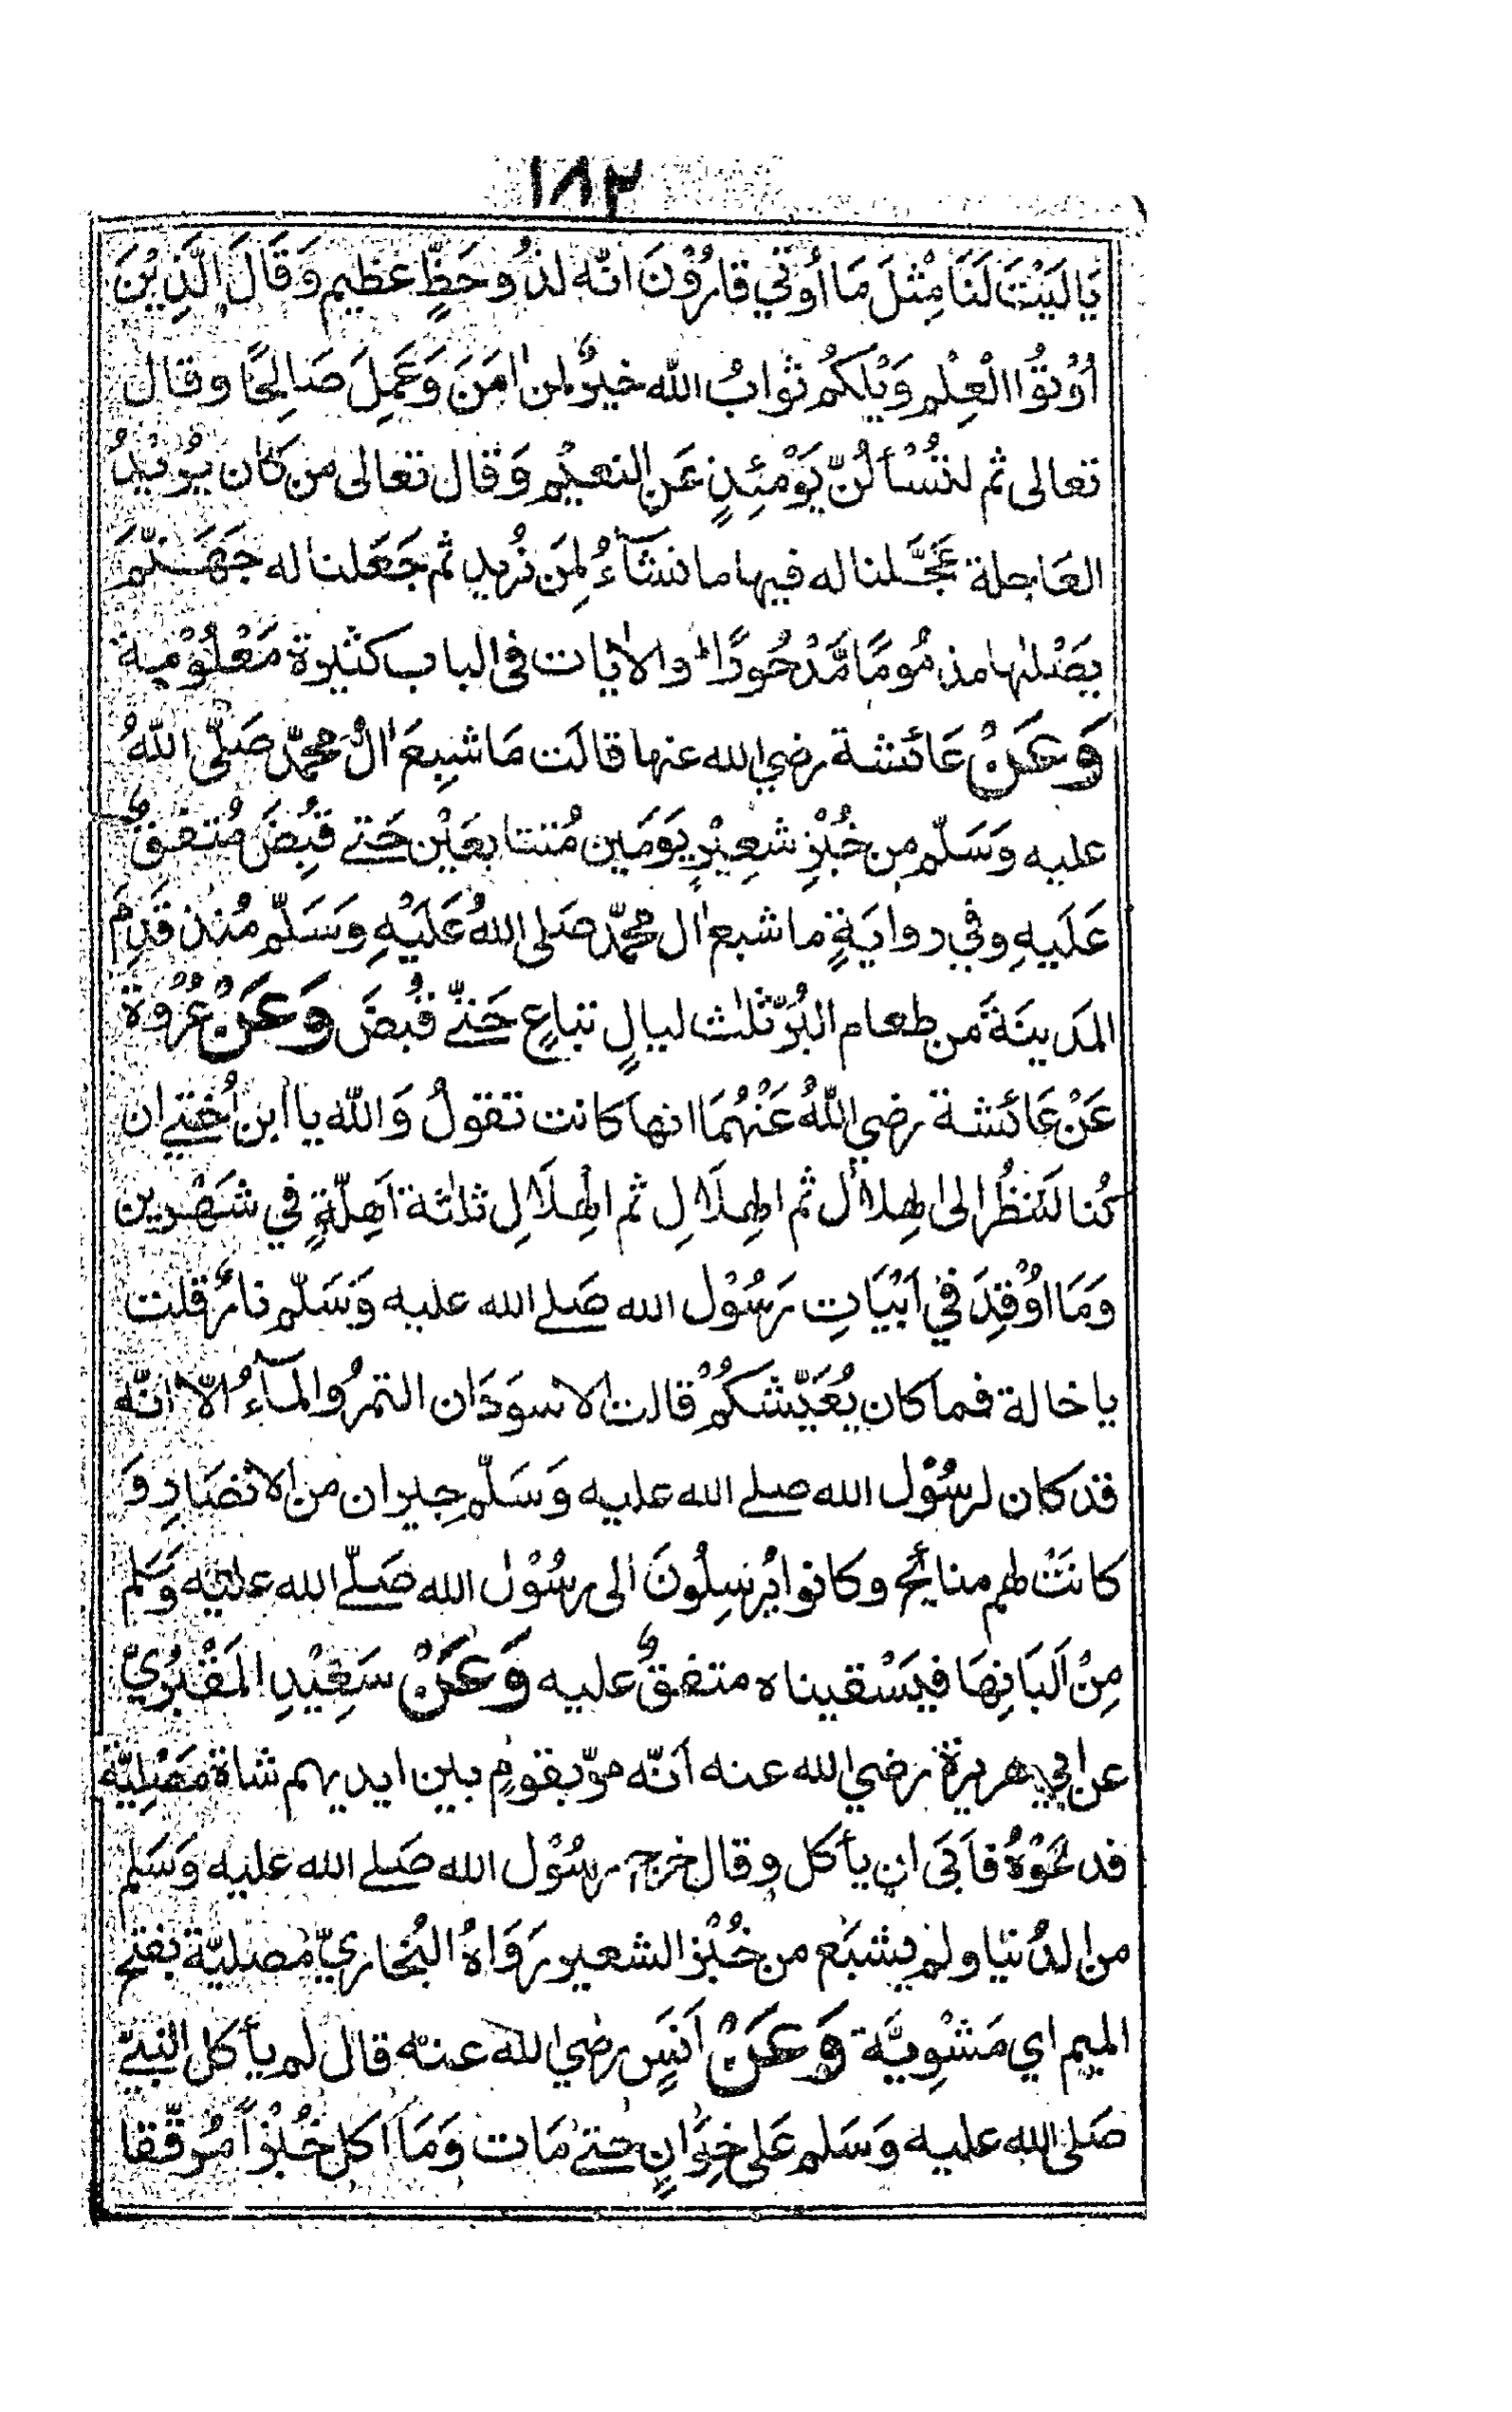 ١٨٢
يَا لَيْتَ لَنَا مِثْلَ مَا أُوتِي قارُوْنَ انّه لذُو حَظٍّ عظيم وَقَالَ الَّذِيْنَ
أوْتُوا الْعِلْم وَيْلَكُم ثوابُ الله خيرٌ لمن اٰمَنَ وَعَمِلَ صَالِحًا وقال
تعالى ثم لتُسْألُنّ يَوْمَئِذٍ عَنِ النعيْم وَقال تعالى من كان يُريْدُ
العَاجلة عَجَّلنا له فيها ما نشَآءُ لِمَن نُريد ثم جَعَلنا له جَهَنّمَ
يَصْلٰىها مذمُومًا مَّدْحُورًا والاٰيات فى الباب كثيرة مَعْلُوْمة
وَعَنْ عَائشة رضي الله عنها قالَت مَا شبِعَ اٰلُ محمّد صَلّى اللهُ
عليه وَسَلّم من خُبْزِ شعِيْرٍ يَومَين مُتتابعَيْن حَتے قُبِضَ مُتفقٌ
عَلَيهِ وفي روايَةٍ ما شبع اٰل محمّد صَلى اللهُ عَلَيْهِ وَسَلّم مُنذ قَدِمَ
المَدينَةَ من طعام البُرّ ثلٰث ليالٍ تباعٍ حَتّے قُبِضَ وَعَنْ عُرْوَة
عَنْ عَائشة رضي اللهُ عَنْهُمَا انها كانت تقولُ وَالله يا ابن اُختے ان
كُنا لَنَنظُرُ الى الهِلال ثم الهِلَالِ ثم الهِلَالِ ثلٰثة اَهِلّةٍ في شَهْرين
وَمَا اوْقِدَ في اَبْيَاتِ رَسُوْل الله صَلے الله عليه وَسَلّم نارٌ قلت
يا خالة فما كان يُعَيّشكُمْ قالت الاسوَدَان التمرُ والمَآءُ الّا انّه
قد كان لرسُوْل الله صلے الله عليه وَسَلّم جِيران من الانصَارِ وَ
كانَتْ لهم منائح وكانوا يُرْسِلُونَ الى رسُوْل الله صَلّے الله عليه وَسَلم
مِنْ اَلبَانِهَا فيَسْقيناه متفقٌ عليه وَعَنْ سَعِيْدِ المَقْبُرِيّ
عن ابي هريرة رضي الله عنه اَنّه مرّ بقومٍ بين ايديهم شاة مَصْلِيّة
فدعَوْهُ فاَبَى ان يأكل وقال خرج رسُوْل الله صَلے الله عليه وَسَلم
من الدُنيا ولم يشبَع من خُبْز الشعير رَوَاهُ البُخاريّ مصليّة بفتح
الميم اي مَشْوِيَّة وَعَنْ اَنَسٍ رضي الله عنه قال لم يأكل النبيّ
صَلى الله عليه وَسَلم عَلى خِوَانٍ حَتے مَات وَمَا اَكل خُبْزاً مُرقّقا